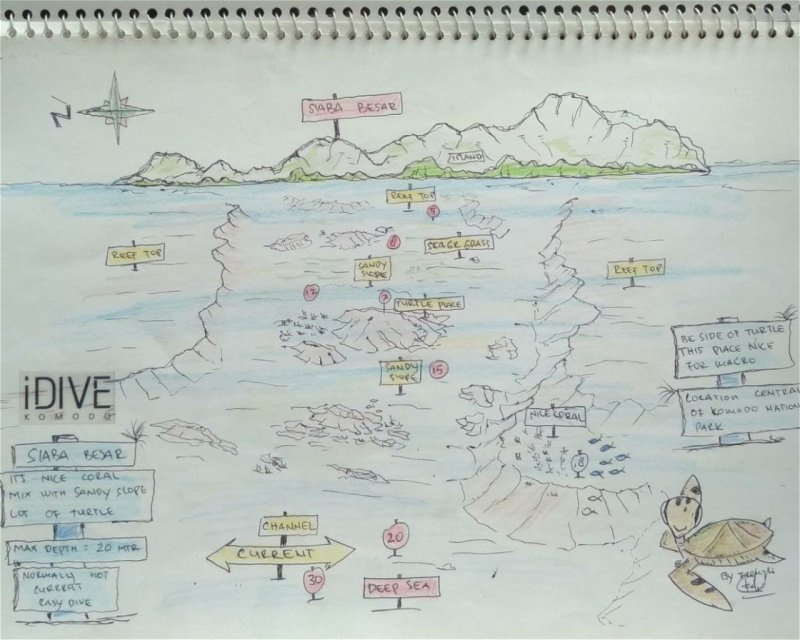 N
SIABA BESAR
ISLAND
REEF TOP
5
REEF TOP
6
SEAGR GRASS
REEF TOP
SANDY
SLOPE
12
7
TURTLE PLACE
SANDY
SLOPE
15
BE SIDE OF TURTLE
THIS PLACE NICE
FOR MACRO
LOCATION CENTRAL
OF KOMODO NATION
PARK
iDIVE
KOMODO
NICE CORAL
18
SIABA BESAR
ITS NICE CORAL
MIX WITH SANDY SLOPE
LOT OF TURTLE
MAX DEPTH = 20 MTR
NORMALLY NOT
CURRENT
EASY DIVE
CHANNEL
CURRENT
20
30
DEEP SEA
By